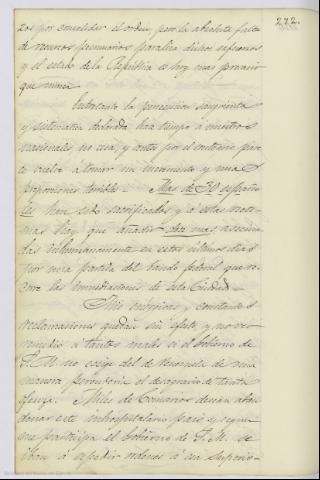 272.
zos por consolidar el orden, pero la absoluta falta
de recursos pecuniarios paraliza dichos esfuerzos
y el estado de la República es hoy mas precario
que nunca.
Entretanto la persecucion sangrienta
y sistematica declarada hace tiempo á nuestros
nacionales no cesa, y antes por el contrario parece
vuelve á tomar un incremento y unas
proporciones terribles. Mas de 30 españoles
han sido sacrificados y á estas victimas
hay que añadir diez mas asesinadas
inhumanamente en estos últimos dias
por una partida del bando federal que recorre
las inmediaciones de esta Ciudad.
Mis enérgicas y constantes
reclamaciones quedan sin efecto, y no veo
remedio á tantos males si el Gobierno de
S. M. no exige del de Venezuela de una
manera perentoria el desagravio de tanta
ofensa. Miles de Canarios desean abandonar
este inhospitalario pais y segun
me participa el Gobierno de S. M. se
iban á espedir ordenes á esa Superio-